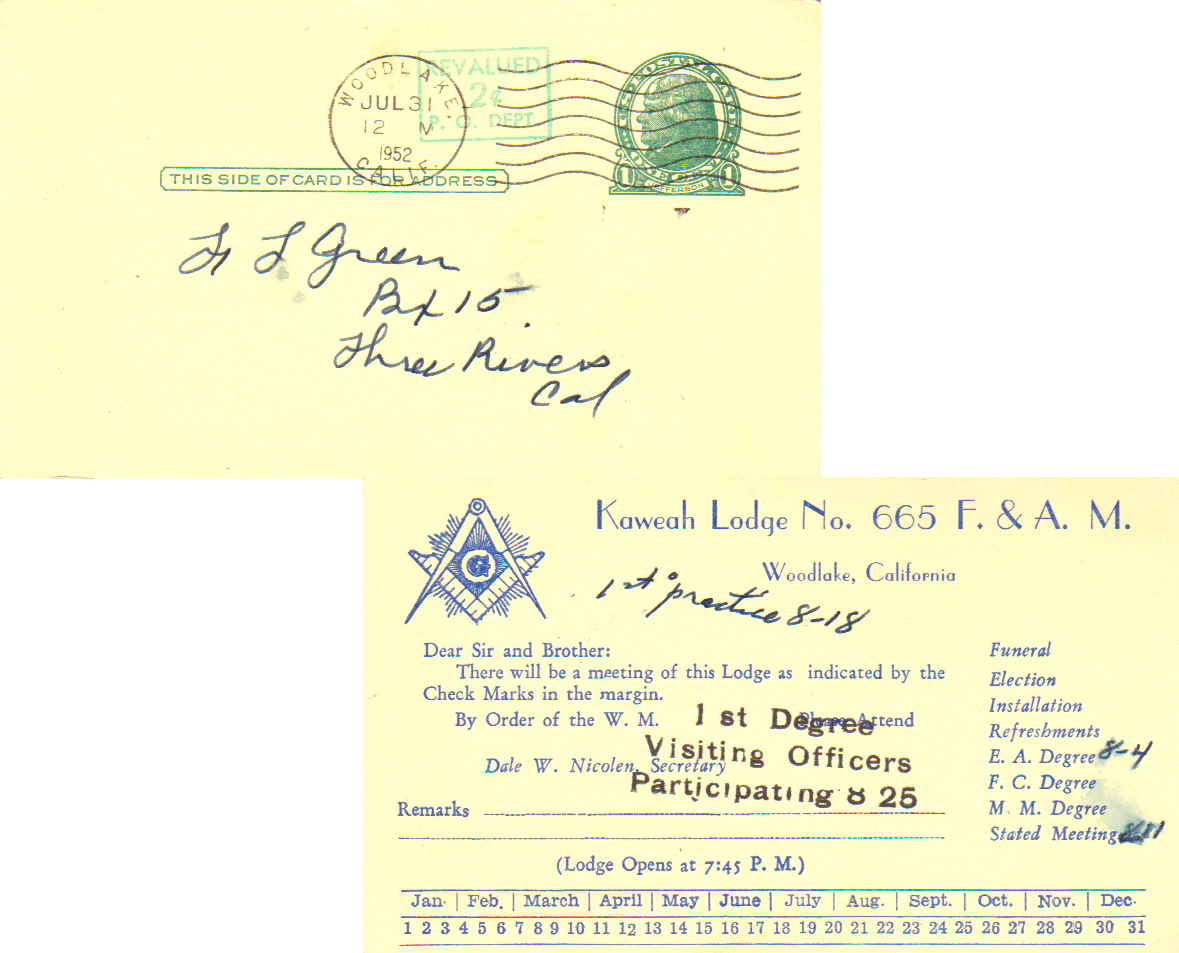 REVALUED
2¢
P. O. DEPT.
WOODLAKE.
JUL 31
12 M
1952
CALIF.
UNITED STATES POSTAGE
1 JEFFERSON 1
THIS SIDE OF CARD IS FOR ADDRESS
Green
Bx 15
Three Rivers
Cal
Kaweah Lodge No. 665 F. & A. M.
Woodlake, California
1st practice 8-18
G
Dear Sir and Brother:
There will be a meeting of this Lodge as indicated by the
Check Marks in the margin.
By Order of the W. M. Please Attend
1 st Degree
Visiting Officers
Participating 8 25
Dale W. Nicolen, Secretary
Remarks
Funeral
Election
Installation
Refreshments
E. A. Degree 8-4
F. C. Degree
M. M. Degree
Stated Meeting 8-11
(Lodge Opens at 7:45 P. M.)
Jan. | Feb. | March | April | May | June | July | Aug. | Sept. | Oct. | Nov. | Dec.
1 2 3 4 5 6 7 8 9 10 11 12 13 14 15 16 17 18 19 20 21 22 23 24 25 26 27 28 29 30 31